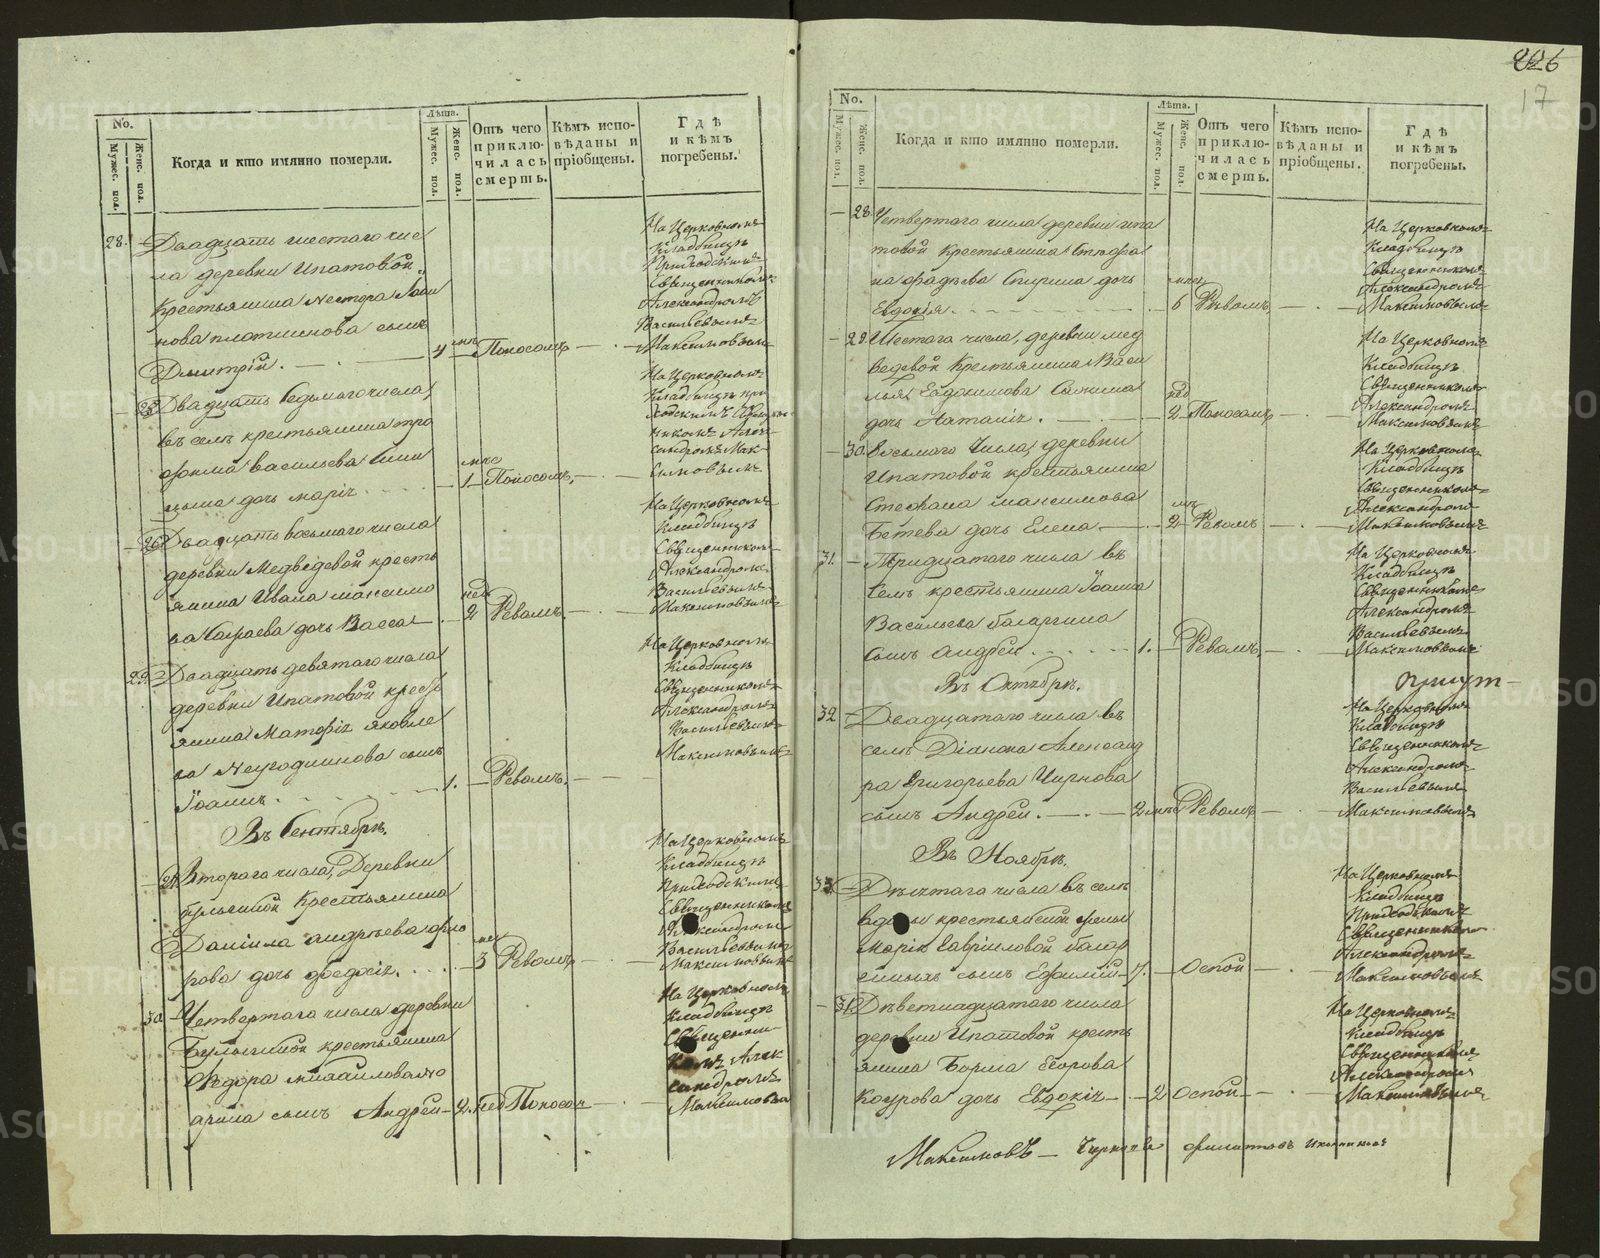 226
17
No.
Мужес. пол.
Женс. пол.
Когда и кто имянно померли.
Лѣта.
Мужес. пол.
Женс. пол.
Отъ чего приклю-
чилась смерть.
Кѣмъ испо-
вѣданы и
пріобщены.
Гдѣ
и кѣмъ
погребены.
28. Двадцать шестаго чис
ла деревни Ипатовой
Крестьянина Нестора
нова плотникова сынъ
Дмитрій. 4 Поносомъ
На Церковномъ
Кладбищѣ
Приходскимъ
Священникомъ
Александромъ
Васильевымъ
Максимовымъ
25 Двадцать седьмаго числа,
въ селѣ крестьянина тро
фима васильева
дочь марія 1 Поносомъ,
На Церковномъ
Кладбищѣ при
ходскимъ Священ
никомъ Алек
сандромъ Мак
симовымъ
26 Двадцать восьмаго числа
деревни Медвѣдевой кресть
янина Ивана максимо
ва дочь Васса 2 нед Ревомъ.
На Церковномъ
Кладбищѣ
Священникомъ
Александромъ
Васильевымъ
Максимовымъ
29. Двадцать девятаго числа
деревни Ипатовой кресть
янина яковле
ва сынъ
Іоаннъ. 1. Ревомъ.
На Церковномъ
Кладбищѣ
Священникомъ
Александромъ
Васильевымъ
Максимовымъ
Въ Сентябрѣ.
27 Втораго числа, Деревни
Крестьянина
Даніила андреева
рова дочь феодосія. 3 Ревомъ
На Церковномъ
Кладбищѣ
Приходскимъ
Священникомъ
Александромъ
Васильевымъ
Максимовымъ
30. Четвертаго числа деревни
крестьянина
Ѳедора михайлова
сынъ Андрей 2. нед Поносом
На Церковномъ
Кладбищѣ
Священни
комъ Алек
сандромъ
Максимовым
No.
Мужес. пол.
Женс. пол.
Когда и кто имянно померли.
Лѣта.
Мужес. пол.
Женс. пол.
Отъ чего приклю-
чилась смерть.
Кѣмъ испо-
вѣданы и
пріобщены.
Гдѣ
и кѣмъ
погребены.
28. Четвертаго числа деревни ипа
товой Крестьянина Стефа
на фадѣева Спирина дочь
Евдокія 6 Ревомъ
На Церковномъ
Кладбищѣ
Священникомъ
Александромъ
Максимовымъ
29. Шестаго числа, деревни мед
ведевой Крестьянина Васи
лья Евдокимова
дочь Наталія. 2 нед Поносомъ
На Церковномъ
Кладбищѣ
Священникомъ
Александромъ
Максимовымъ
30. Восьмаго Числа, деревни
Ипатовой крестьянина
Стефана максимова
Бѣтева дочь Елена 2 Ревомъ
На Церковномъ
Кладбищѣ
Священникомъ
Александром
Максимовымъ
31. Тридцатаго числа въ
селѣ крестьянина Іоанна
Васильева балагнина
сынъ андрей 1. Ревомъ.
На Церковномъ
Кладбищѣ
Священникомъ
Александромъ
Васильевымъ
Максимовымъ
Въ Октябрѣ.
32 Двадцатаго числа въ
селѣ Діакона Александ
ра Григорьева Чиркова
сынъ Андрей. 2 Ревомъ
На Церковномъ
Кладбищѣ
Священникомъ
Александромъ
Васильевымъ
Максимовымъ
Въ Ноябрѣ.
33. Девятаго числа въ селѣ
вдовы крестьянской жены
маріи Гавриловой
сынъ Ефимій 7. Оспой
На Церковномъ
Кладбищѣ
Приходскимъ
Священникомъ
Александромъ
Максимовымъ
31. Девятнадцатаго числа
деревни Ипатовой кресть
янина Егорова
дочь Евдокія 2 Оспой
На Церковномъ
Кладбищѣ
Священникомъ
Александромъ
Максимовымъ
Максимовъ
METRIKI.GASO-URAL.RU